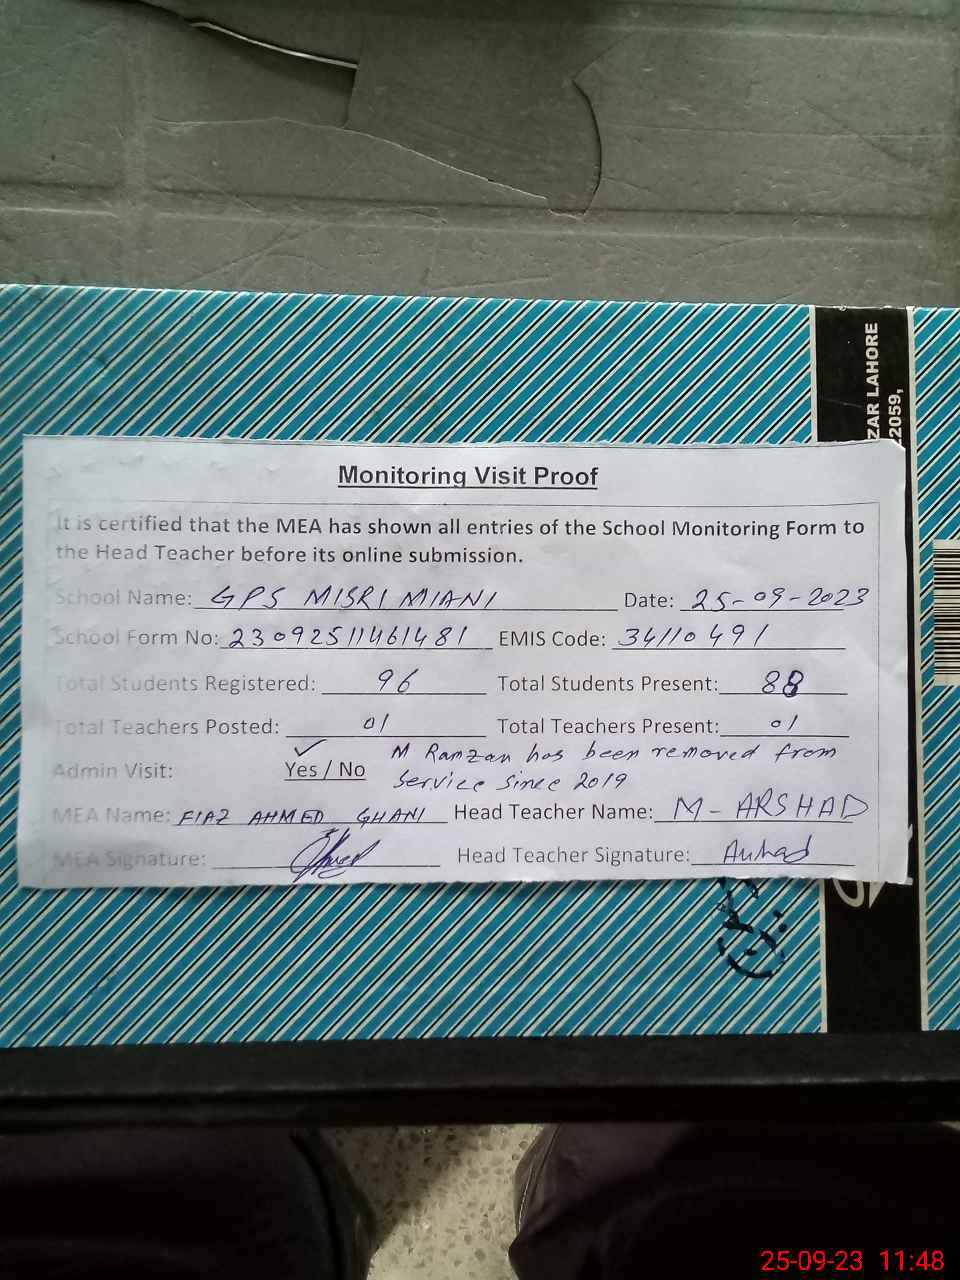 ZAR LAHORE
22059,
Monitoring Visit Proof
It is certified that the MEA has shown all entries of the School Monitoring Form to
the Head Teacher before its online submission.
School Name: GPS MISRI MIANI Date: 25-09-2023
School Form No: 23092511461481 EMIS Code: 34110491
Total Students Registered: 96 Total Students Present: 88
Total Teachers Posted: 01 Total Teachers Present: 01
M Ramzan has been removed from
Admin Visit: Yes / No service since 2019
MEA Name: FIAZ AHMED GHANI Head Teacher Name: M-ARSHAD
MEA Signature: Head Teacher Signature: Arshad
25-09-23 11:48